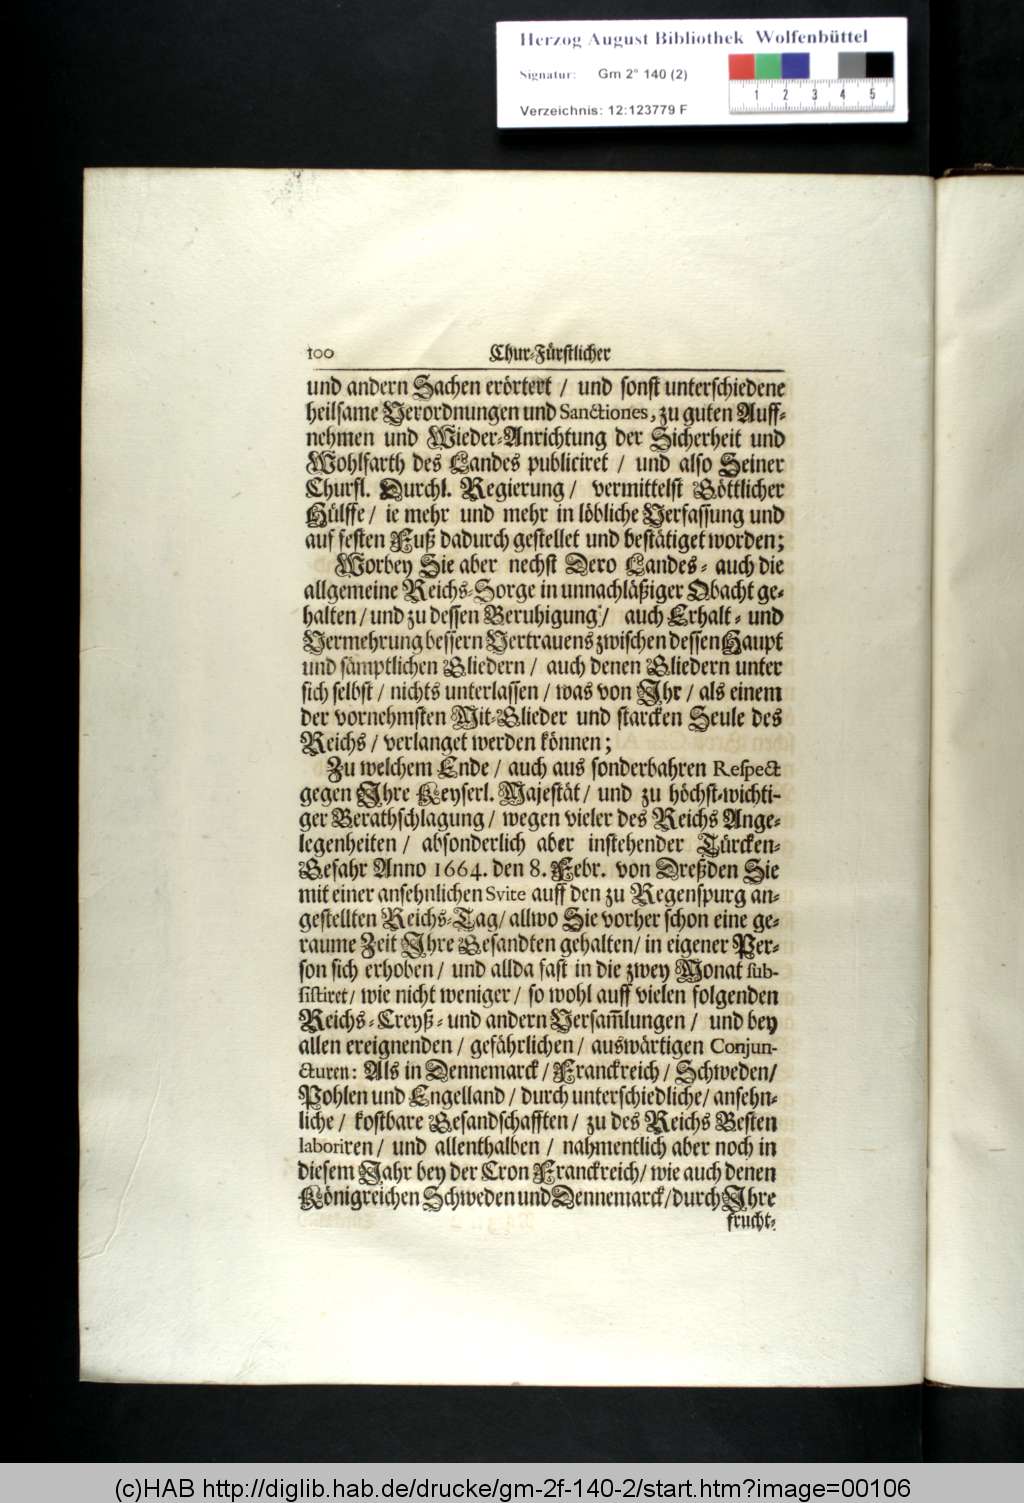 Herzog August Bibliothek Wolfenbüttel
Signatur: Gm 2° 140 (2)
1 2 3 4 5
Verzeichnis: 12:123779 F
100 Chur-Fürstlicher
und andern Sachen erörtert / und sonst unterschiedene
heilsame Verordnungen und Sanctiones, zu guten Auff-
nehmen und Wieder-Anrichtung der Sicherheit und
Wohlfarth des Landes publiciret / und also Seiner
Churfl. Durchl. Regierung / vermittelst Göttlicher
Hülffe / ie mehr und mehr in löbliche Verfassung und
auf festen Fuß dadurch gestellet und bestätiget worden;
Worbey Sie aber nechst Dero Landes- auch die
allgemeine Reichs-Sorge in unnachläßiger Obacht ge-
halten / und zu dessen Beruhigung / auch Erhalt- und
Vermehrung bessern Vertrauens zwischen dessen Haupt
und sämptlichen Gliedern / auch denen Gliedern unter
sich selbst / nichts unterlassen / was von Ihr / als einem
der vornehmsten Mit-Glieder und starcken Seule des
Reichs / verlanget werden können;
Zu welchem Ende / auch aus sonderbahren Respect
gegen Ihre Keyserl. Majestät / und zu höchst-wichti-
ger Berathschlagung / wegen vieler des Reichs Ange-
legenheiten / absonderlich aber instehender Türcken-
Gefahr Anno 1664. den 8. Febr. von Dreßden Sie
mit einer ansehnlichen Svite auff den zu Regenspurg an-
gestellten Reichs-Tag / allwo Sie vorher schon eine ge-
raume Zeit Ihre Gesandten gehalten / in eigener Per-
son sich erhoben / und allda fast in die zwey Monat sub-
sistiret / wie nicht weniger / so wohl auff vielen folgenden
Reichs-Creyß- und andern Versam̃lungen / und bey
allen ereignenden / gefährlichen / auswärtigen Conjun-
cturen: Als in Dennemarck / Franckreich / Schweden /
Pohlen und Engelland / durch unterschiedliche / ansehn-
liche / kostbare Gesandschafften / zu des Reichs Besten
laboriren / und allenthalben / nahmentlich aber noch in
diesem Jahr bey der Cron Franckreich / wie auch denen
Königreichen Schweden und Dennemarck / durch Ihre
frucht-
(c)HAB http://diglib.hab.de/drucke/gm-2f-140-2/start.htm?image=00106